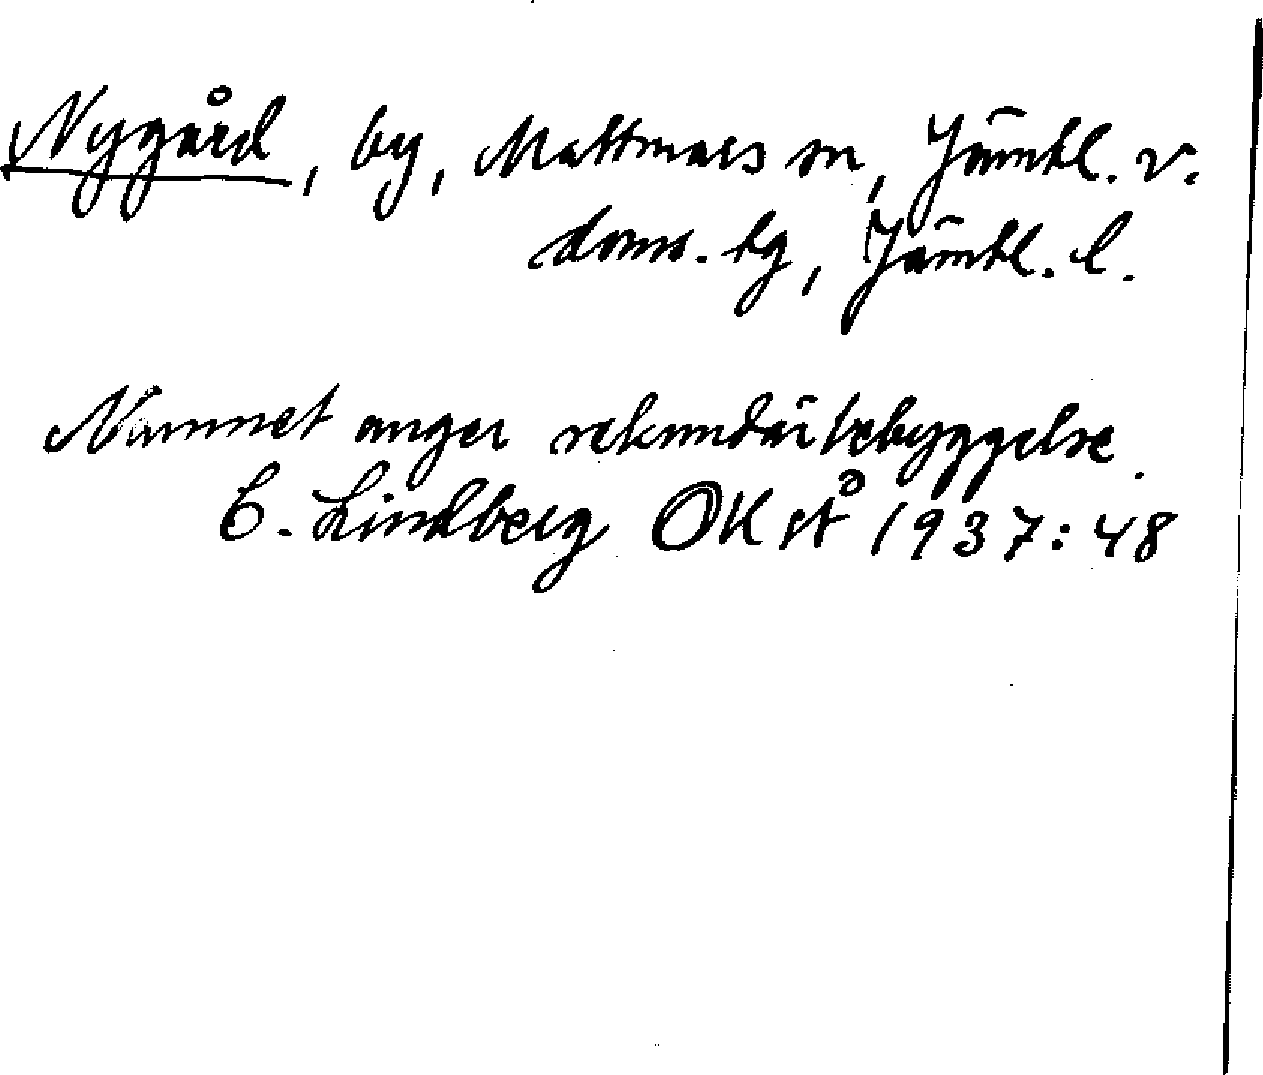 Nygård, by, Mattmars sn, Jämtl. v.
doms. tg, Jämtl. l.
Namnet anger sekundärbebyggelse.
C. Lindberg OK stå 1937:48